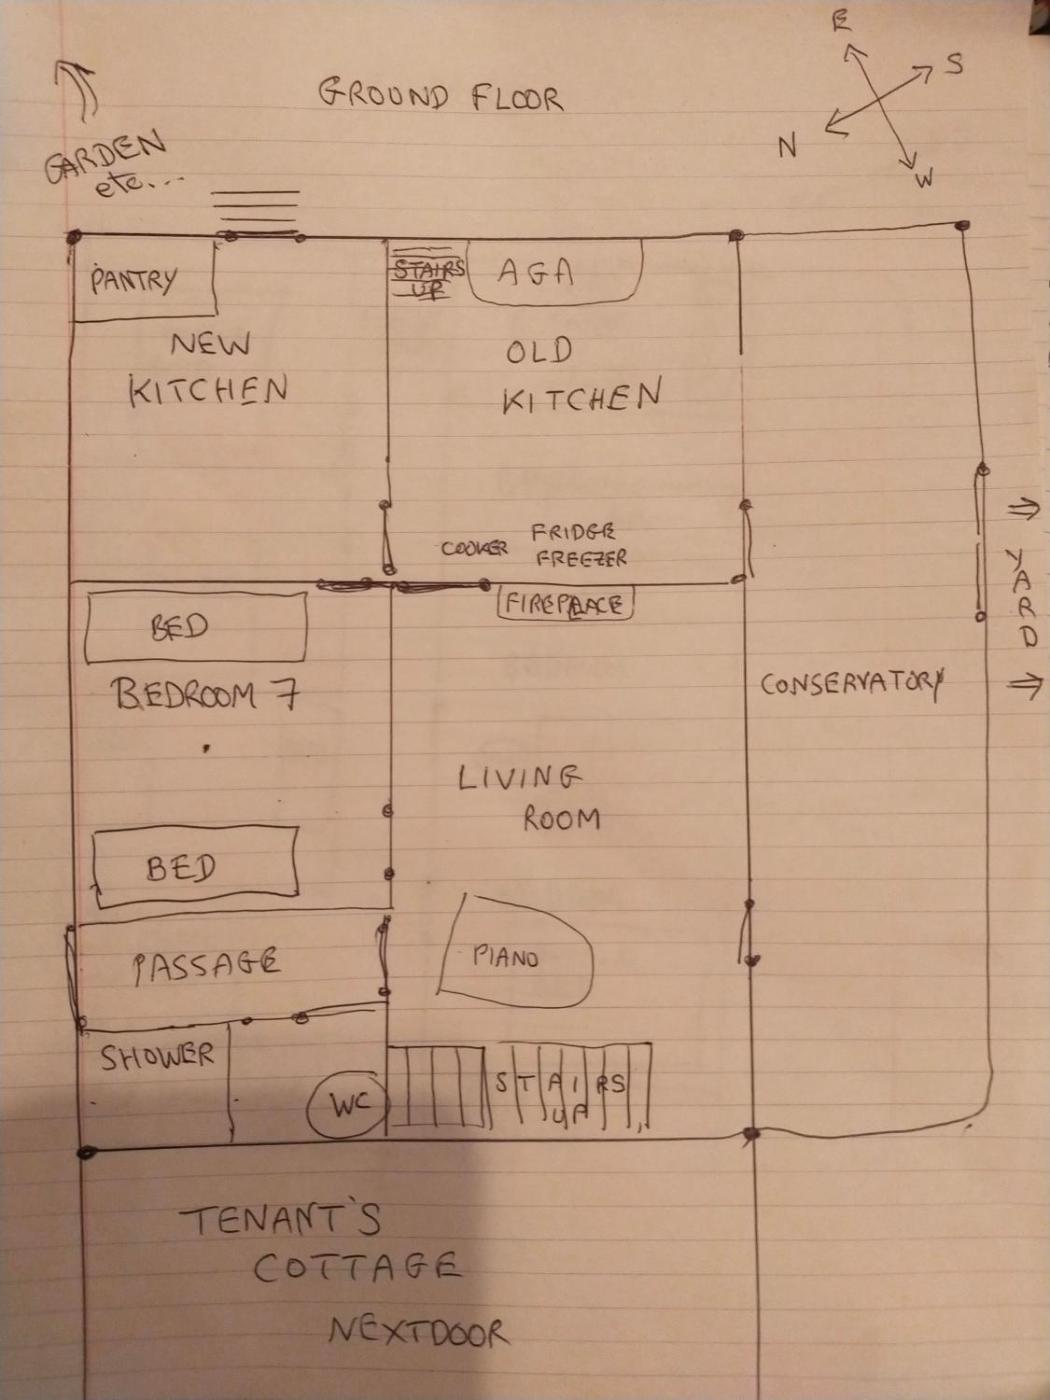 GROUND FLOOR
E
S
N
W
GARDEN
etc...
PANTRY
STAIRS
UP
AGA
NEW
KITCHEN
OLD
KITCHEN
COOKER
FRIDGE
FREEZER
FIREPLACE
⇒
YARD
⇒
BED
BEDROOM 7
CONSERVATORY
LIVING
ROOM
BED
PASSAGE
PIANO
SHOWER
WC
STAIRS
UP
TENANT'S
COTTAGE
NEXTDOOR